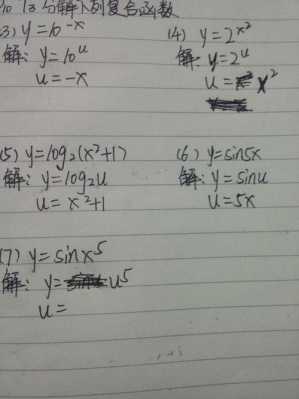 分解下列复合函数
(3) y=10^-x
解: y=10^u
u=-x
(4) y=2^x²
解: y=2^u
u= x²
(5) y=log₂(x²+1)
解: y=log₂u
u=x²+1
(6) y=sin5x
解: y=sinu
u=5x
(7) y=sinx⁵
解: y= u⁵
u=